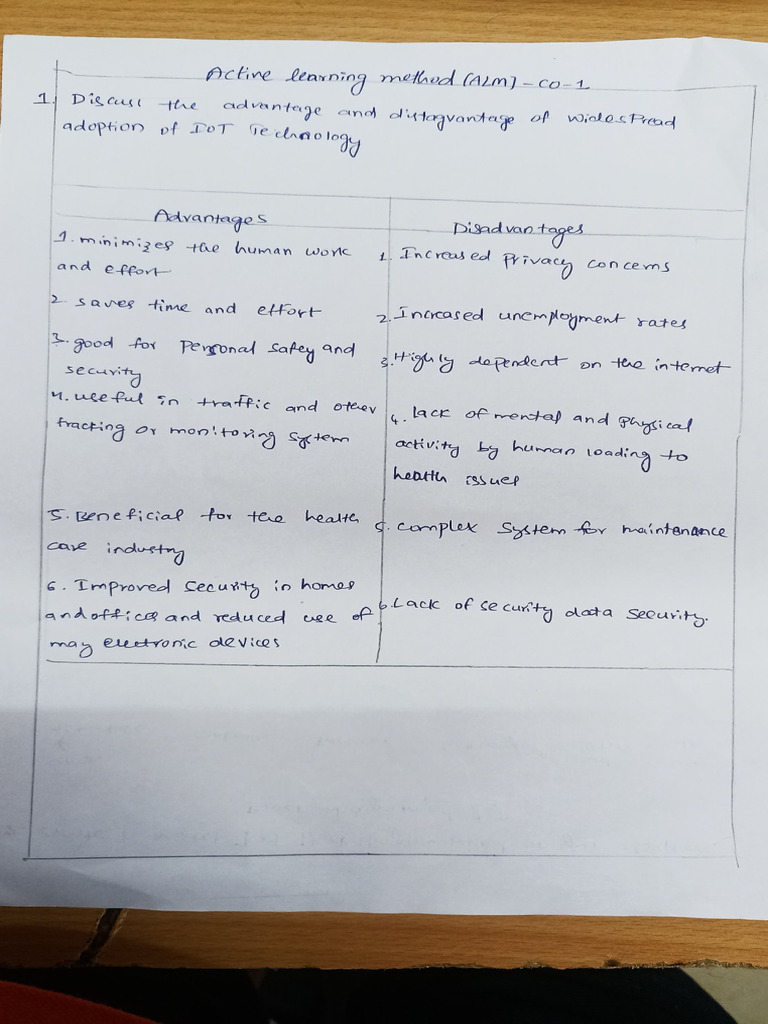 Active learning method (ALM) - CO-1
1. Discuss the advantage and distagvantage of widespread
adoption of IOT Technology
Advantages
1. minimizes the human work
and effort
2 saves time and effort
3. good for personal safey and
security
4. useful in traffic and other
tracting or monitoring system
5. Beneficial for the health
care industry
6. Improved security in homes
and offices and reduced use of
may electronic devices
Disadvantages
1. Increased privacy concerns
2. Increased unemployment rates
3. Highly dependent on the internet
4. lack of mental and physical
activity by human loading to
health issues
5. complex system for maintenance
6. Lack of security data security.